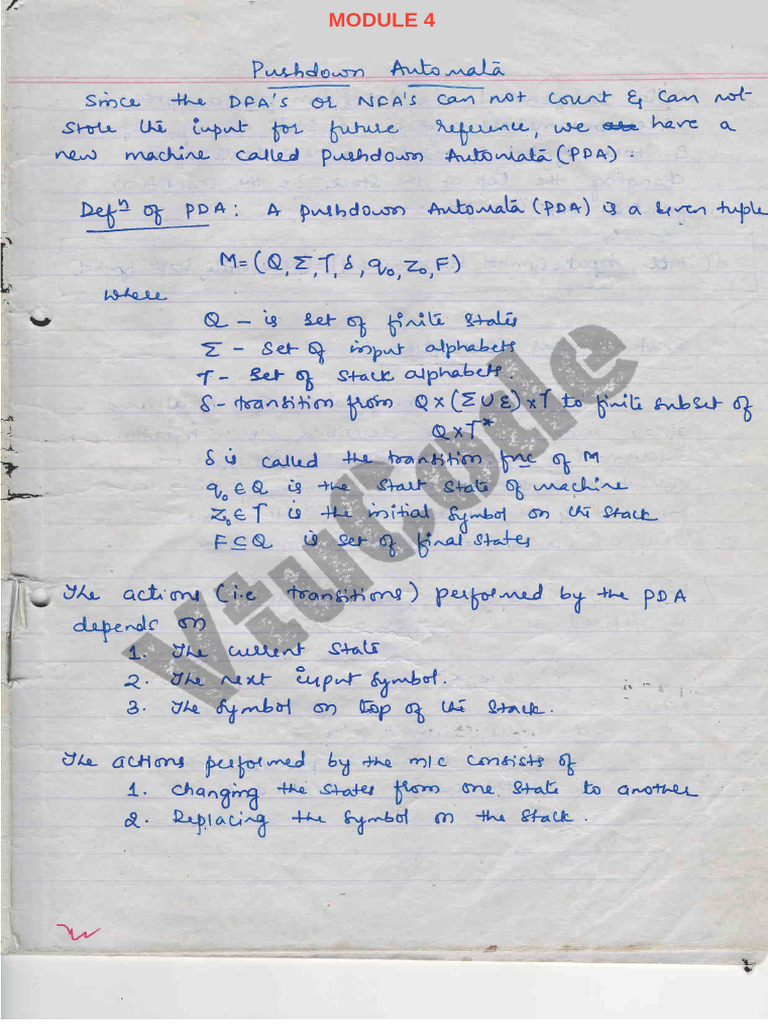 MODULE 4
Pushdown Automata
Since the DFA's or NFA's can not count & can not
store the input for future reference, we have a
new machine called Pushdown Automata (PDA).
Defⁿ of PDA: A pushdown Automata (PDA) is a seven tuple
M = (Q, Σ, Τ, δ, q₀, Z₀, F)
where
Q - is set of finite states
Σ - Set of input alphabets
Τ - Set of stack alphabets.
δ - transition from Q × (Σ ∪ ε) × Τ to finite subset of
Q × Τ*
δ is called the transition fnc of M
q₀ ∈ Q is the start state of machine
Z₀ ∈ Τ is the initial symbol on the stack
F ⊆ Q is set of final states
The actions (i.e transitions) performed by the PDA
depends on
1. The current state
2. The next input symbol.
3. The symbol on top of the stack.
The actions performed by the m/c consists of
1. changing the states from one state to another
2. Replacing the symbol on the stack.
VtuCode